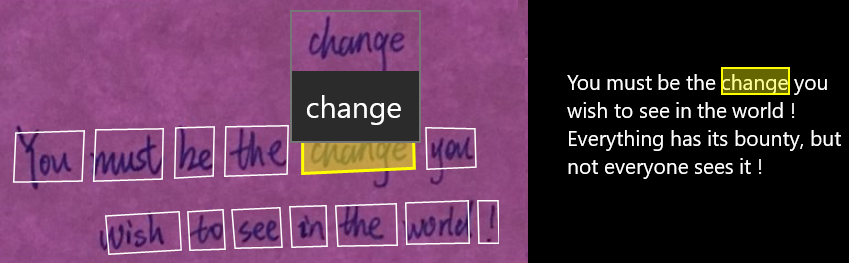 change
change
You must be the change you
wish to see in the world !
You must be the change you
wish to see in the world !
Everything has its bounty, but
not everyone sees it !